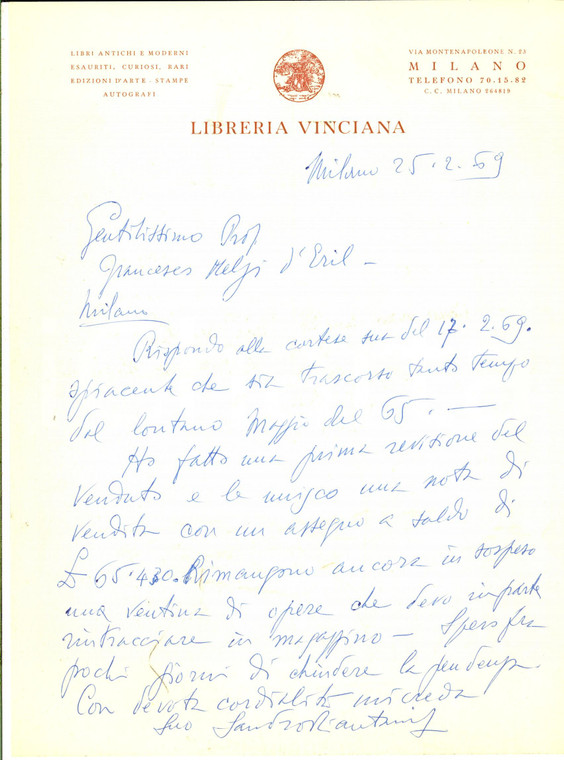 LIBRI ANTICHI E MODERNI
ESAURITI, CURIOSI, RARI
EDIZIONI D'ARTE - STAMPE
AUTOGRAFI
VIA MONTENAPOLEONE N. 23
MILANO
TELEFONO 70.15.82
C. C. MILANO 264819
LIBRERIA VINCIANA
Milano 25.2.69
Gentilissimo Prof
Francesco Melzi d'Eril -
Milano
Rispondo alla cortese sua del 17.2.69.
spiacente che sia trascorso tanto tempo
dal lontano Maggio del 65. -
Ho fatto una prima revisione del
venduto e le unisco una nota di
vendita con un assegno a saldo di
£ 65.430. Rimangono ancora in sospeso
una ventina di opere che devo in parte
rintracciare in magazzino - Spero fra
pochi giorni di chiudere la pendenza.
Con devota cordialità mi creda
Suo Sandro